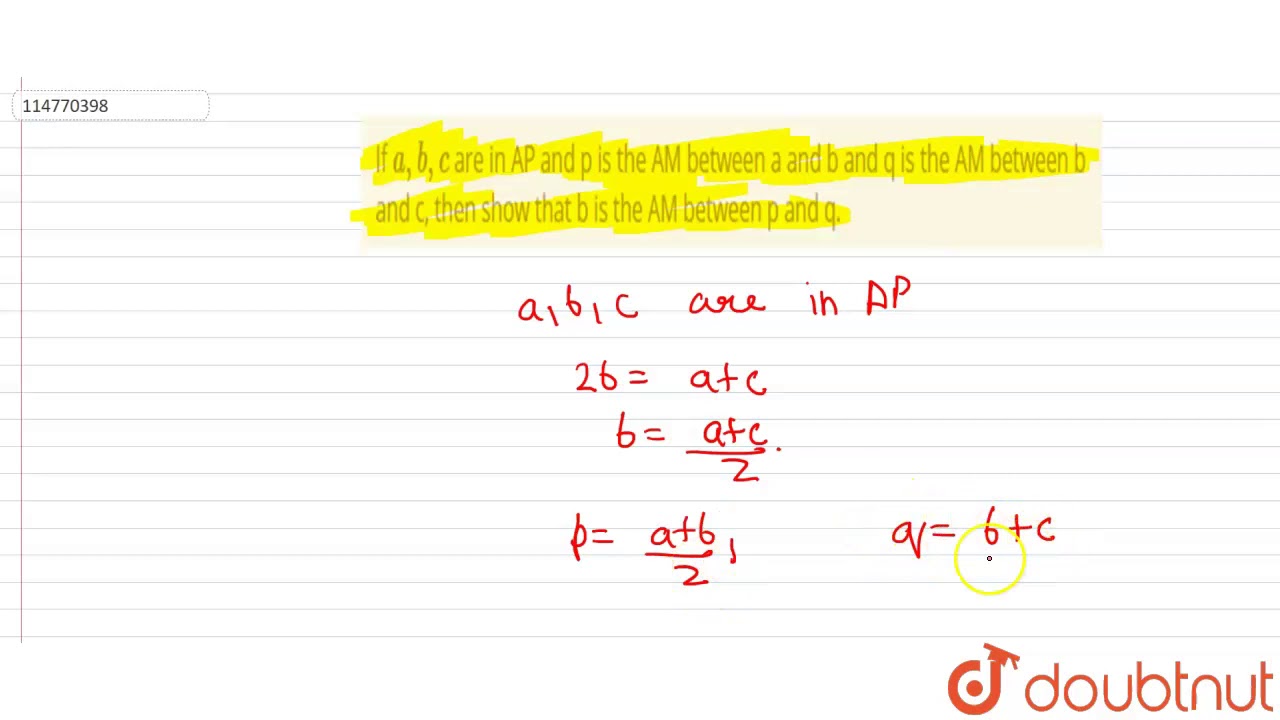 114770398
If a, b, c are in AP and p is the AM between a and b and q is the AM between b
and c, then show that b is the AM between p and q.
a, b, c are in AP
2b = a+c
b = a+c
2 .
p = a+b , q = b+c
2
doubtnut